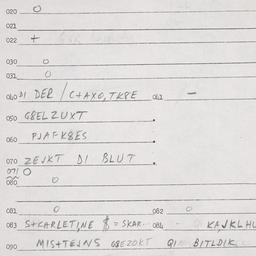 020 O
021
022 +
030 O
031 O
040 DI DER / C+AXO, TKPE 041 -
050 GBELZUXT
060 PJAFKBES
070 ZEJKT DI BLUT
071 O
080 O
081 O 082 O
083 S+KARLETJNE = SKAR- 084 - KAJKLHU
090 MIS+TEJNS QI BITLDIK